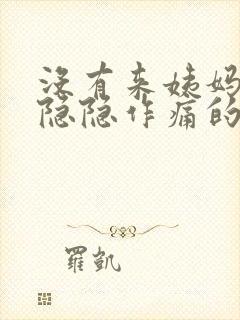 没有来姨妈
隐隐作痛的
羅凱